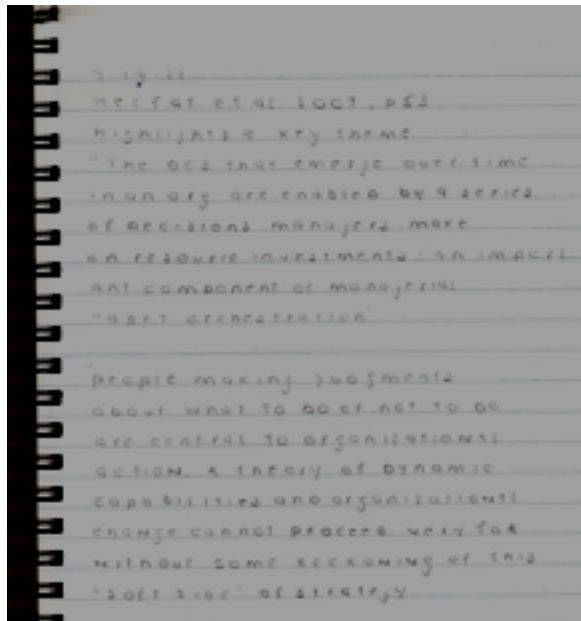 7 18 11
Helfat et al. 2007, p53
highlights a key theme
"The DCs that emerge over time
in an org are enabled by a series
of decisions managers make
on resource investments: an import
ant component of managerial
"asset orchestration"
people making judgments
about what to do or not to do
are central to organizational
action. A theory of dynamic
capabilities and organizational
change cannot proceed very far
without some reckoning of this
"soft side" of strategy